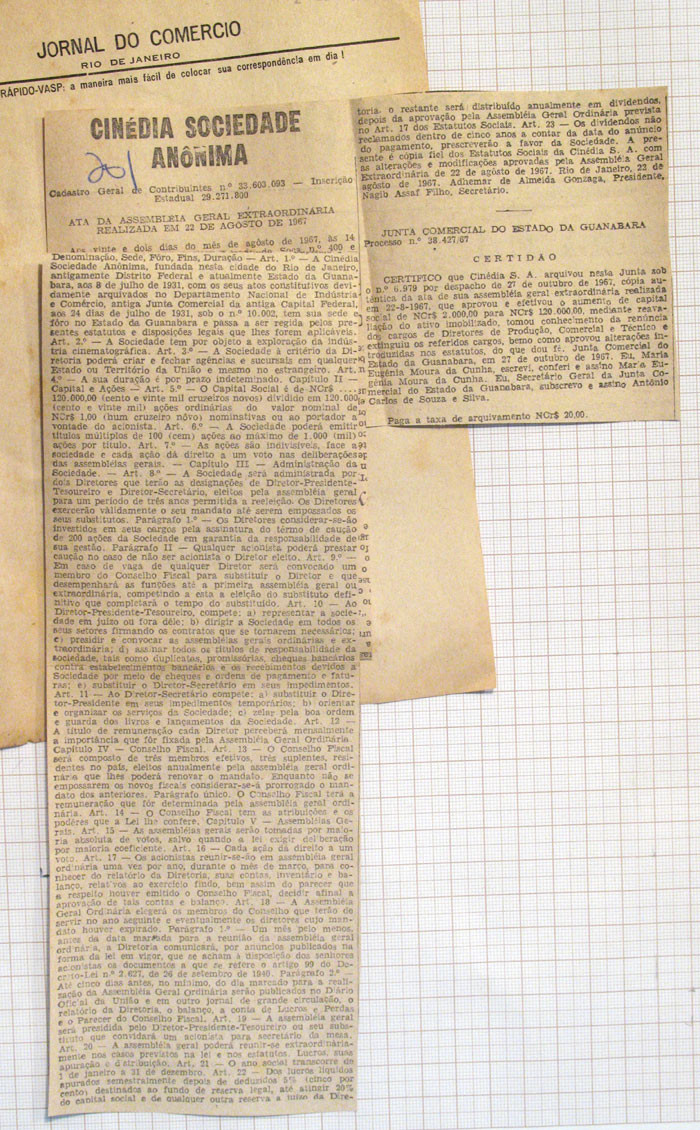 JORNAL DO COMERCIO
RIO DE JANEIRO
RÁPIDO-VASP: a maneira mais fácil de colocar sua correspondência em dia!
CINÉDIA SOCIEDADE
ANÔNIMA
Cadastro Geral de Contribuintes n.º 33.603.693 — Inscrição
Estadual 29.271.800
ATA DA ASSEMBLEIA GERAL EXTRAORDINARIA
REALIZADA EM 22 DE AGOSTO DE 1967
Aos vinte e dois dias do mês de agôsto de 1967, às 14
Denominação, Sede, Fôro, Fins, Duração — Art. 1.º — A Cinédia
Sociedade Anônima, fundada nesta cidade do Rio de Janeiro,
antigamente Distrito Federal e atualmente Estado da Guana-
bara, aos 8 de julho de 1931, com os seus atos constitutivos devi-
damente arquivados no Departamento Nacional de Indústria
e Comércio, antiga Junta Comercial da antiga Capital Federal,
aos 24 dias de julho de 1931, sob o n.º 10.002, tem sua sede e
fôro no Estado da Guanabara e passa a ser regida pelos pre-
sentes estatutos e disposições legais que lhes forem aplicáveis.
Art. 2.º — A Sociedade tem por objeto a exploração da indús-
tria cinematográfica. Art. 3.º — A Sociedade a critério da Di-
retoria poderá criar e fechar agências e sucursais em qualquer
Estado ou Território da União e mesmo no estrangeiro. Art.
4.º — A sua duração é por prazo indeterminado. Capítulo II
Capital e Ações — Art. 5.º — O Capital Social é de NCr$ ....
120.000,00 (cento e vinte mil cruzeiros novos) dividido em 120.000
(cento e vinte mil) ações ordinárias do valor nominal de
NCr$ 1,00 (hum cruzeiro nôvo) nominativas ou ao portador a
vontade do acionista. Art. 6.º — A Sociedade poderá emitir
títulos múltiplos de 100 (cem) ações ao máximo de 1.000 (mil)
ações por título. Art. 7.º — As ações são indivisíveis, face a
sociedade e cada ação dá direito a um voto nas deliberações
das assembléias gerais. — Capítulo III — Administração da
Sociedade. — Art. 8.º — A Sociedade será administrada por
dois Diretores que terão as designações de Diretor-Presidente-
Tesoureiro e Diretor-Secretário, eleitos pela assembléia geral
para um período de três anos permitida a reeleição. Os Diretores
exercerão vàlidamente o seu mandato até serem empossados os
seus substitutos. Parágrafo 1.º — Os Diretores considerar-se-ão
investidos em seus cargos pela assinatura do têrmo de caução
de 200 ações da Sociedade em garantia da responsabilidade de
sua gestão. Parágrafo II — Qualquer acionista poderá prestar
caução no caso de não ser acionista o Diretor eleito. Art. 9.º —
Em caso de vaga de qualquer Diretor será convocado um
membro do Conselho Fiscal para substituir o Diretor e que
desempenhará as funções até a primeira assembléia geral ou
extraordinária, competindo a esta a eleição do substituto defi-
nitivo que completará o tempo do substituído. Art. 10 — Ao
Diretor-Presidente-Tesoureiro, compete: a) representar a socie-
dade em juízo ou fora dêle; b) dirigir a Sociedade em todos os
seus setores firmando os contratos que se tornarem necessários;
c) presidir e convocar as assembléias gerais ordinárias e ex-
traordinária; d) assinar todos os títulos de responsabilidade da
sociedade, tais como duplicatas, promissórias, cheques bancários
contra estabelecimentos bancários e os recebimentos devidos a
Sociedade por meio de cheques e ordens de pagamento e fatu-
ras; e) substituir o Diretor-Secretário em seus impedimentos.
Art. 11 — Ao Diretor-Secretário compete: a) substituir o Dire-
tor-Presidente em seus impedimentos temporários; b) orientar
e organizar os serviços da Sociedade; c) zelar pela boa ordem
e guarda dos livros e lançamentos da Sociedade. Art. 12 —
A título de remuneração cada Diretor perceberá mensalmente
a importância que fôr fixada pela Assembléia Geral Ordinária.
Capítulo IV — Conselho Fiscal. Art. 13 — O Conselho Fiscal
será composto de três membros efetivos, três suplentes, resi-
dentes no país, eleitos anualmente pela assembléia geral ordi-
nária que lhes poderá renovar o mandato. Enquanto não se
empossarem os novos fiscais considerar-se-á prorrogado o man-
dato dos anteriores. Parágrafo único. O Conselho Fiscal terá a
remuneração que fôr determinada pela assembléia geral ordi-
nária. Art. 14 — O Conselho Fiscal tem as atribuições e os
podêres que a Lei lhe confere. Capítulo V — Assembléias Ge-
rais. Art. 15 — As assembléias gerais serão tomadas por maio-
ria absoluta de votos, salvo quando a lei exigir deliberação
por maioria coeficiente. Art. 16 — Cada ação dá direito a um
voto. Art. 17 — Os acionistas reunir-se-ão em assembléia geral
ordinária uma vez por ano, durante o mês de março, para co-
nhecer do relatório da Diretoria, suas contas, inventário e ba-
lanço, relativos ao exercício findo, bem assim do parecer que
a respeito houver emitido o Conselho Fiscal, decidir afinal a
aprovação de tais contas e balanço. Art. 18 — A Assembléia
Geral Ordinária elegerá os membros do Conselho que terão de
servir no ano seguinte e eventualmente os diretores cujo man-
dato houver expirado. Parágrafo 1.º — Um mês pelo menos,
antes da data marcada para a reunião da assembléia geral
ordinária, a Diretoria comunicará, por anúncios publicados na
forma da lei em vigor, que se acham à disposição dos senhores
acionistas os documentos a que se refere o artigo 99 do De-
creto-Lei n.º 2.627, de 26 de setembro de 1940. Parágrafo 2.º —
Até cinco dias antes, no mínimo, do dia marcado para a reali-
zação da Assembléia Geral Ordinária serão publicados no Diário
Oficial da União e em outro jornal de grande circulação, o
relatório da Diretoria, o balanço, a conta de Lucros e Perdas
e o Parecer do Conselho Fiscal. Art. 19 — A assembléia geral
será presidida pelo Diretor-Presidente-Tesoureiro ou seu subs-
tituto que convidará um acionista para secretário da mesa.
Art. 20 — A assembléia geral poderá reunir-se extraordinària-
mente nos casos previstos na lei e nos estatutos. Lucros, suas
apuração e distribuição. Art. 21 — O ano social transcorre de
1 de janeiro a 31 de dezembro. Art. 22 — Dos lucros líquidos
apurados semestralmente depois de deduzidos 5% (cinco por
cento) destinados ao fundo de reserva legal, até atingir 20%
do capital social e de qualquer outra reserva a juízo da Dire-
toria, o restante será distribuído anualmente em dividendos,
depois da aprovação pela Assembléia Geral Ordinária prevista
no Art. 17 dos Estatutos Sociais. Art. 23 — Os dividendos não
reclamados dentro de cinco anos a contar da data do anúncio
do pagamento, prescreverão a favor da Sociedade. A pre-
sente é cópia fiel dos Estatutos Sociais da Cinédia S. A. com
as alterações e modificações aprovadas pela Assembléia Geral
Extraordinária de 22 de agôsto de 1967. Rio de Janeiro, 23 de
agôsto de 1967. Adhemar de Almeida Gonzaga, Presidente,
Nagib Assaf Filho, Secretário.
JUNTA COMERCIAL DO ESTADO DA GUANABARA
Processo n.º 38.427/67
CERTIDÃO
CERTIFICO que Cinédia S. A. arquivou nesta Junta sob
o n.º 6.979 por despacho de 27 de outubro de 1967, cópia au-
têntica da ata de sua assembléia geral extraordinária realizada
em 22-8-1967, que aprovou e efetivou o aumento de capital
social de NCr$ 2.000,00 para NCr$ 120.000,00, mediante reava-
liação do ativo imobilizado, tomou conhecimento da renúncia
dos cargos de Diretores de Produção, Comercial e Técnico e
extinguiu os referidos cargos, bem como aprovou alterações in-
troduzidas nos estatutos, do que dou fé. Junta Comercial do
Estado da Guanabara, em 27 de outubro de 1967. Eu, Maria
Eugênia Moura da Cunha, escrevi, conferi e assino Maria Eu-
gênia Moura da Cunha. Eu, Secretário Geral da Junta Co-
mercial do Estado da Guanabara, subscrevo e assino Antônio
Carlos de Souza e Silva.
Paga a taxa de arquivamento NCr$ 20,00.